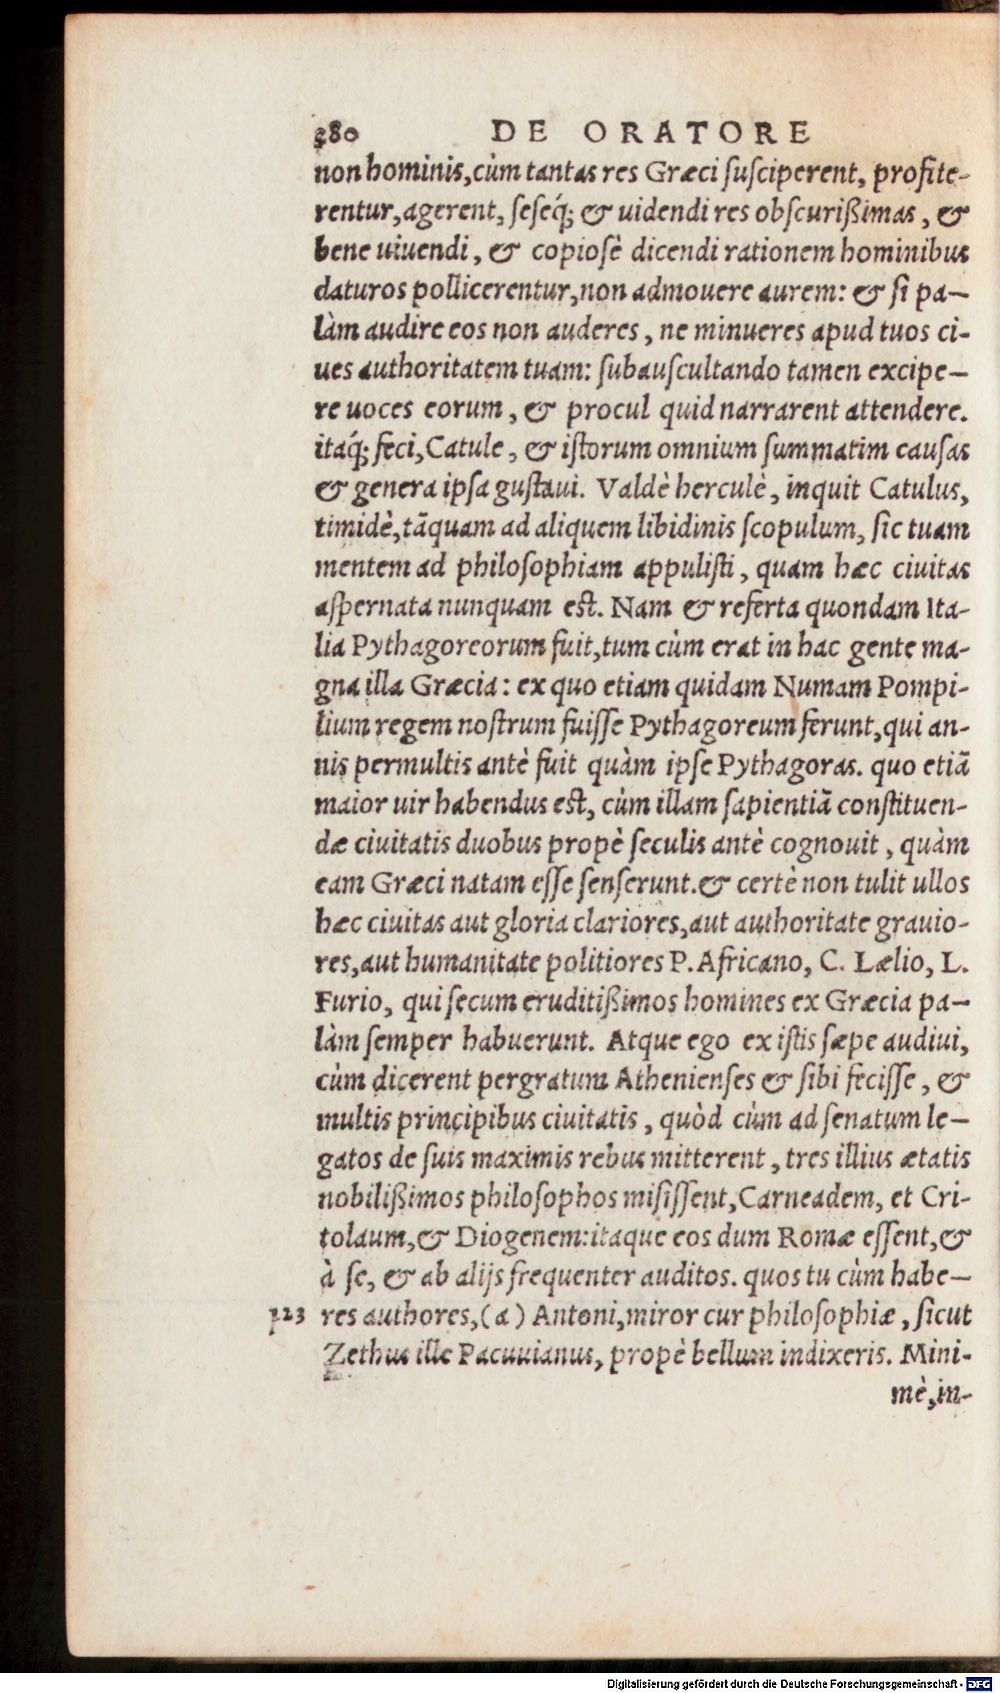 380 DE ORATORE
non hominis, cùm tantas res Græci susciperent, profite-
rentur, agerent, seseq́; & uidendi res obscurißimas, &
bene uiuendi, & copiosè dicendi rationem hominibus
daturos pollicerentur, non admouere aurem: & si pa-
làm audire eos non auderes, ne minueres apud tuos ci-
ues authoritatem tuam: subauscultando tamen excipe-
re uoces eorum, & procul quid narrarent attendere.
itaq́; feci, Catule, & istorum omnium summatim causas
& genera ipsa gustaui. Valdè herculè, inquit Catulus,
timidè, tāquam ad aliquem libidinis scopulum, sic tuam
mentem ad philosophiam appulisti, quam hæc ciuitas
aspernata nunquam est. Nam & referta quondam Ita-
lia Pythagoreorum fuit, tum cùm erat in hac gente ma-
gna illa Græcia: ex quo etiam quidam Numam Pompi-
lium regem nostrum fuisse Pythagoreum ferunt, qui an-
nis permultis antè fuit quàm ipse Pythagoras. quo etiā
maior uir habendus est, cùm illam sapientiā constituen-
dæ ciuitatis duobus propè seculis antè cognouit, quàm
eam Græci natam esse senserunt. & certè non tulit ullos
hæc ciuitas aut gloria clariores, aut authoritate grauio-
res, aut humanitate politiores P. Africano, C. Lælio, L.
Furio, qui secum eruditißimos homines ex Græcia pa-
làm semper habuerunt. Atque ego ex istis sæpe audiui,
cùm dicerent pergratum Athenienses & sibi fecisse, &
multis principibus ciuitatis, quòd cùm ad senatum le-
gatos de suis maximis rebus mitterent, tres illius ætatis
nobilißimos philosophos misissent, Carneadem, et Cri-
tolaum, & Diogenem: itaque eos dum Romæ essent, &
à se, & ab alijs frequenter auditos. quos tu cùm habe-
323 res authores, (a) Antoni, miror cur philosophiæ, sicut
Zethus ille Pacuuianus, propè bellum indixeris. Mini-
mè, in-
Digitalisierung gefördert durch die Deutsche Forschungsgemeinschaft - DFG